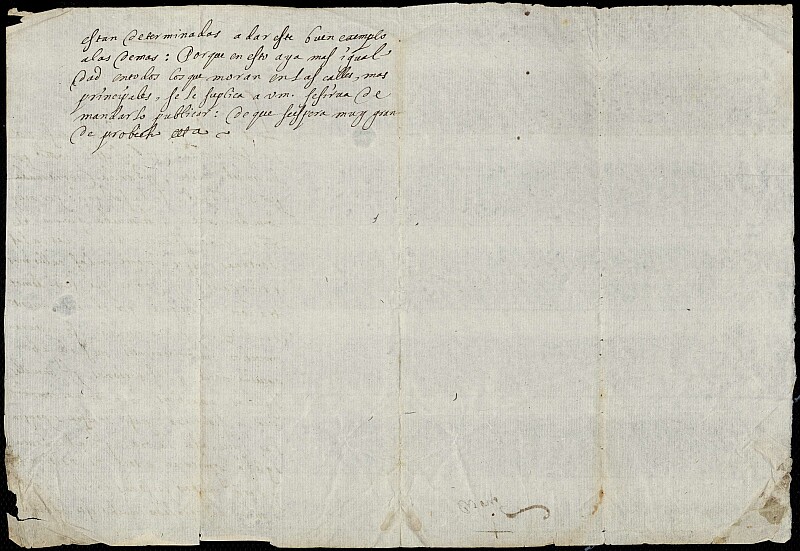 estan determinados a dar este buen exemplo
a los demas: Porque en esto aya mas igual
dad en todos los que moran en las calles, mas
principales, se le suplica a vm. se sirva de
mandarlo publicar: de que se espera muy gran
de probecho etta